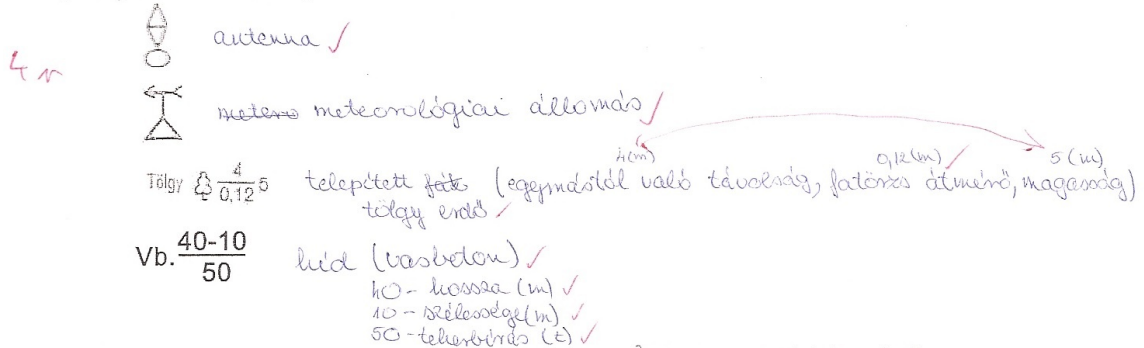 antenna
4 n
metero meteorológiai állomás
4(m) 0,12(m) 5(m)
Tölgy 4/0.12 5 telepített fák (egymástól való távolság, fatörzs átmérő, magasság)
tölgy erdő
Vb. 40-10/50 híd (vasbeton)
40 - hossza (m)
10 - szélessége (m)
50 - teherbírás (t)